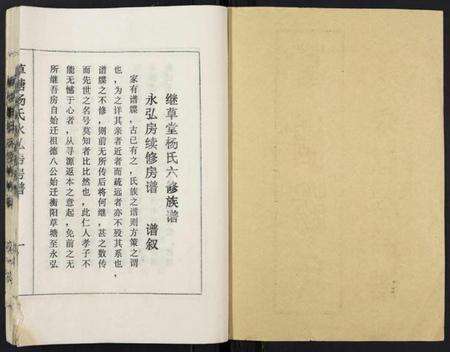 继草堂杨氏六修族谱
永弘房续修房谱 谱叙
家有谱牒，古已有之，氏族之谱则方策之谓
也，为之详其亲者近者而疏远者亦不殁其系也，
谱牒之不修，则前无所传后将何继，甚之数传
而先世之名号莫知者比比然也，此仁人孝子不
能无憾于心者，从寻源返本之意起，免前之无
所继吾房自始迁祖德八公始迁衡阳草塘至永弘
草塘杨氏永弘房房谱
一